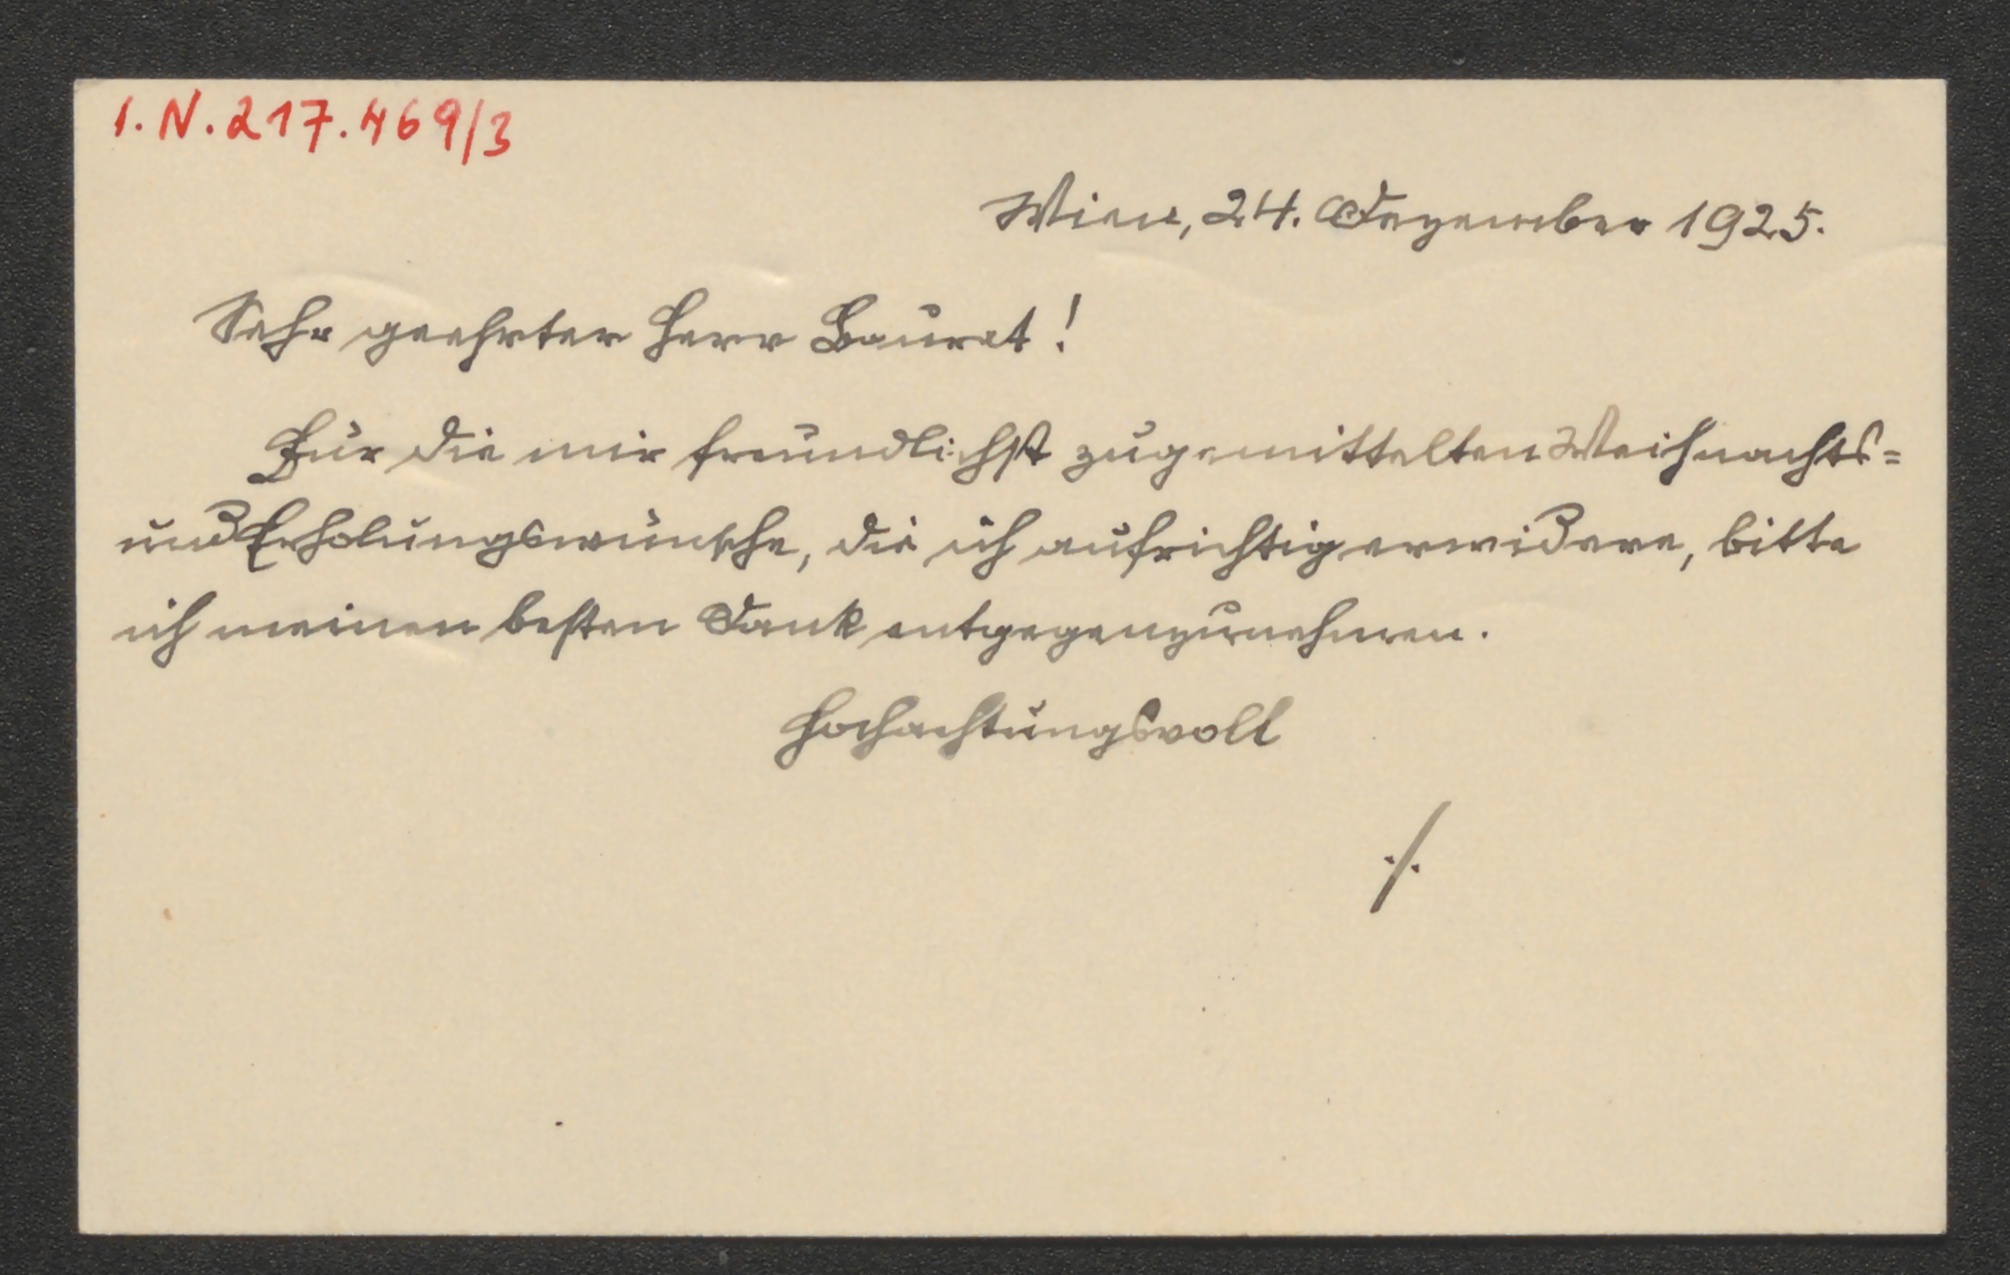 I.N.217.469/3
Wien, 24. Dezember 1925.
Sehr geehrter Herr Baurat!
Für die mir freundlichst zugemittelten Weihnachts=
und Erholungswünsche, die ich aufrichtig erwidere, bitte
ich meinen besten Dank entgegenzunehmen.
Hochachtungsvoll
./.